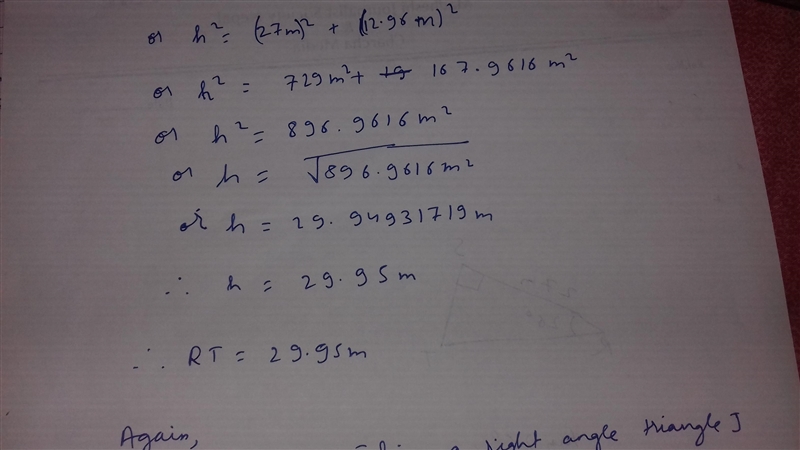 or h² = (27m)² + (12.96 m)²
or h² = 729m² + 167.9616 m²
or h² = 896.9616 m²
or h = √896.9616 m²
or h = 29.94931719 m
∴ h = 29.95 m
∴ RT = 29.95m
Again, right angle triangle]